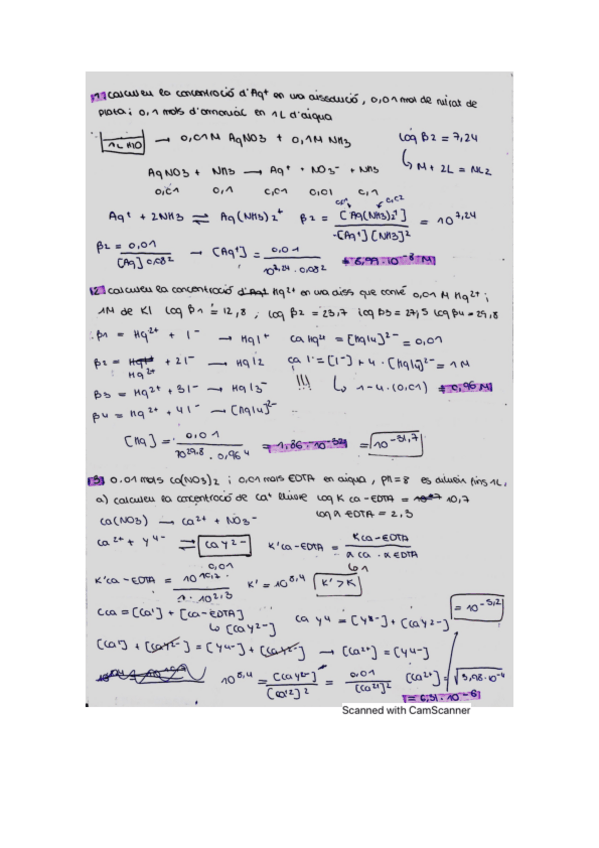 1] calculeu la concentració d'Ag+ en una dissolució, 0,01 mol de nitrat de
plata i 0,1 mols d'amoníac en 1L d'aigua
1L H2O → 0,01M AgNO3 + 0,1M NH3 log β2 = 7,24
↳ M + 2L = ML2
AgNO3 + NH3 → Ag+ + NO3- + NH3
0,01 0,1 0,01 0,01 0,1
Ag+ + 2NH3 ⇌ Ag(NH3)2+ β2 = [Ag(NH3)2+] / [Ag+][NH3]2 = 10^7,24
β2 = 0,01 / [Ag] 0,082 → [Ag+] = 0,01 / 10^7,24 · 0,082 = 8,99·10^-8 M
2] calculeu la concentració d'Hg2+ en una diss que conté 0,01 M Hg2+ i
1M de KI log β1 = 12,8, log β2 = 23,7 log β3 = 27,5 log β4 = 29,8
β1 = Hg2+ + I- → HgI+ ca Hg2+ = [HgI4]2- = 0,01
β2 = Hg2+ + 2I- → HgI2 ca I- = [I-] + 4·[HgI4]2- = 1M
β3 = Hg2+ + 3I- → HgI3- !!! ↳ 1-4·(0,01) = 0,96 M
β4 = Hg2+ + 4I- → [HgI4]2-
[Hg] = 0,01 / 10^29,8 · 0,96^4 = 1,86·10^-32 = 10^-31,7
3] 0,01 mols Ca(NO3)2 i 0,01 mols EDTA en aigua, pH=8 es dilueix fins 1L,
a) calculeu la concentració de Ca+ lliure log K Ca-EDTA = 10,7
log α EDTA = 2,3
Ca(NO3) → Ca2+ + NO3-
Ca2+ + Y4- ⇌ CaY2- K'Ca-EDTA = KCa-EDTA / αCa · αEDTA
0,01 ↳1
K'Ca-EDTA = / 1·10^2,3 K' = 10^8,4 K' > K
Cca = [Ca'] + [Ca-EDTA] = 10^-5,2
↳ [CaY2-] ca Y4 = + [CaY2-]
[Ca'] + [CaY2-] = [Y4-] + [CaY2-] → [Ca2+] = [Y4-]
10^8,4 = [CaY2-] / [Ca'2]2 = 0,01 / [Ca2+]2 [Ca2+] = √3,98·10^-4
= 6,31·10^-6
Scanned with CamScanner